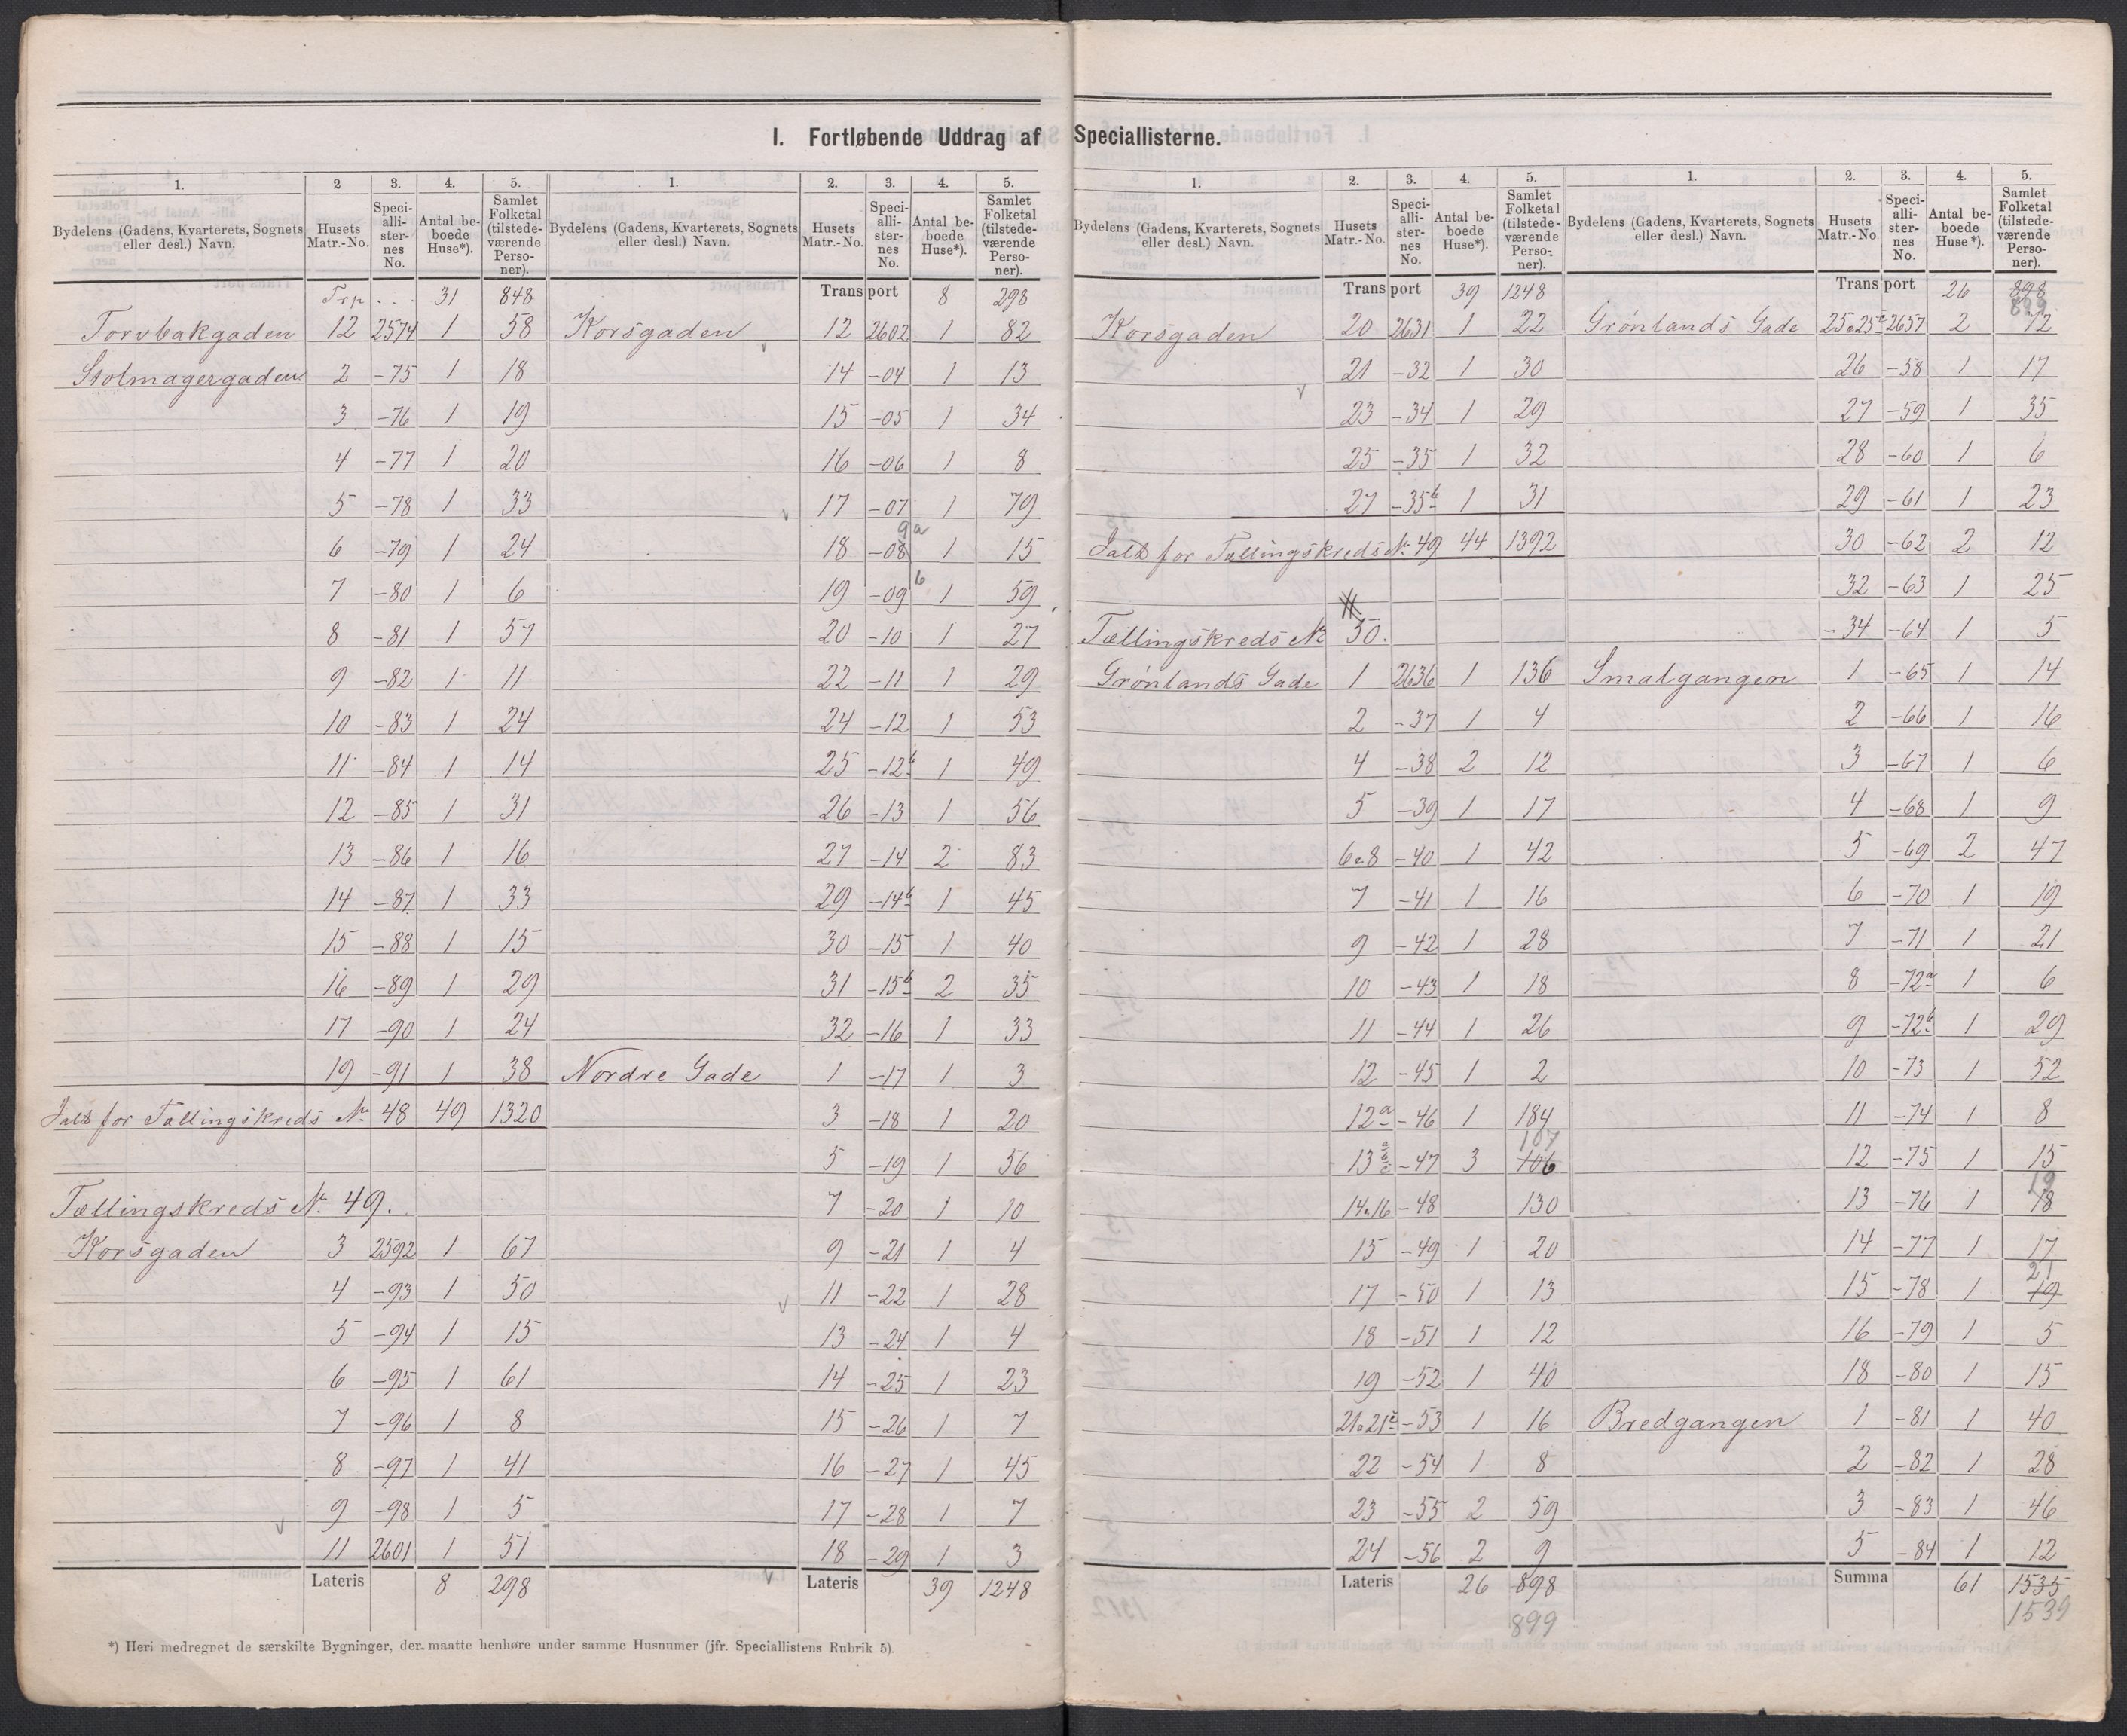 I. Fortløbende Uddrag af Speciallisterne.
1. 2 3. 4. 5.
Bydelens (Gadens, Kvarterets, Sognets eller desl.) Navn. Husets Matr.-No. Speciallisternes No. Antal beboede Huse*). Samlet Folketal (tilstedeværende Personer).
Trp. . . 31 848
Torvbakgaden 12 2574 1 58
Stolmagergaden 2 -75 1 18
3 -76 1 19
4 -77 1 20
5 -78 1 33
6 -79 1 24
7 -80 1 6
8 -81 1 57
9 -82 1 11
10 -83 1 24
11 -84 1 14
12 -85 1 31
13 -86 1 16
14 -87 1 33
15 -88 1 15
16 -89 1 29
17 -90 1 24
19 -91 1 38
Ialt for Tællingskreds No. 48 49 1320
Tællingskreds No. 49.
Korsgaden 3 2592 1 67
4 -93 1 50
5 -94 1 15
6 -95 1 61
7 -96 1 8
8 -97 1 41
9 -98 1 5
11 2601 1 51
Lateris 8 298
1. 2. 3. 4. 5.
Bydelens (Gadens, Kvarterets, Sognets eller desl.) Navn. Husets Matr.-No. Speciallisternes No. Antal beboede Huse*). Samlet Folketal (tilstedeværende Personer).
Transport 8 298
Korsgaden 12 2602 1 82
14 -04 1 13
15 -05 1 34
16 -06 1 8
17 -07 1 79
18 -08 9a 1 15
19 -09 b 1 59
20 -10 1 27
22 -11 1 29
24 -12 1 53
25 -12b 1 49
26 -13 1 56
27 -14 2 83
29 -14b 1 45
30 -15 1 40
31 -15b 2 35
32 -16 1 33
Nordre Gade 1 -17 1 3
3 -18 1 20
5 -19 1 56
7 -20 1 10
9 -21 1 4
11 -22 1 28
13 -24 1 4
14 -25 1 23
15 -26 1 7
16 -27 1 45
17 -28 1 7
18 -29 1 3
Lateris 39 1248
*) Heri medregnet de særskilte Bygninger, der maatte henhøre under samme Husnumer (jfr. Speciallistens Rubrik 5).
1. 2. 3. 4. 5.
Bydelens (Gadens, Kvarterets, Sognets eller desl.) Navn. Husets Matr.-No. Speciallisternes No. Antal beboede Huse*). Samlet Folketal (tilstedeværende Personer).
Transport 39 1248
Korsgaden 20 2631 1 22
21 -32 1 30
23 -34 1 29
25 -35 1 32
27 -35b 1 31
Ialt for Tællingskreds No. 49 44 1392
Tællingskreds No 50.
Grønlands Gade 1 2636 1 136
2 -37 1 4
4 -38 2 12
5 -39 1 17
6 & 8 -40 1 42
7 -41 1 16
9 -42 1 28
10 -43 1 18
11 -44 1 26
12 -45 1 2
12a -46 1 184
13 -47 3 106 107
14 & 16 -48 130
15 -49 1 20
17 -50 1 13
18 -51 1 12
19 -52 1 40
21 & 21c -53 1 16
22 -54 1 8
23 -55 2 59
24 -56 2 9
Lateris 26 898
899
1. 2. 3. 4. 5.
Bydelens (Gadens, Kvarterets, Sognets eller desl.) Navn. Husets Matr.-No. Speciallisternes No. Antal beboede Huse*). Samlet Folketal (tilstedeværende Personer).
Transport 26 898
899
Grønlands Gade 25 & 25c 2657 2 12
26 -58 1 17
27 -59 1 35
28 -60 1 6
29 -61 1 23
30 -62 2 12
32 -63 1 25
-34 -64 1 5
Smalgangen 1 -65 1 14
2 -66 1 16
3 -67 1 6
4 -68 1 9
5 -69 2 47
6 -70 1 19
7 -71 1 21
8 -72a 1 6
9 -72b 1 29
10 -73 1 52
11 -74 1 8
12 -75 1 15
13 -76 1 18 19
14 -77 1 17
15 -78 1 19 21
16 -79 1 5
18 -80 1 15
Bredgangen 1 -81 1 40
2 -82 1 28
3 -83 1 46
5 -84 1 12
Summa 61 1535
1539